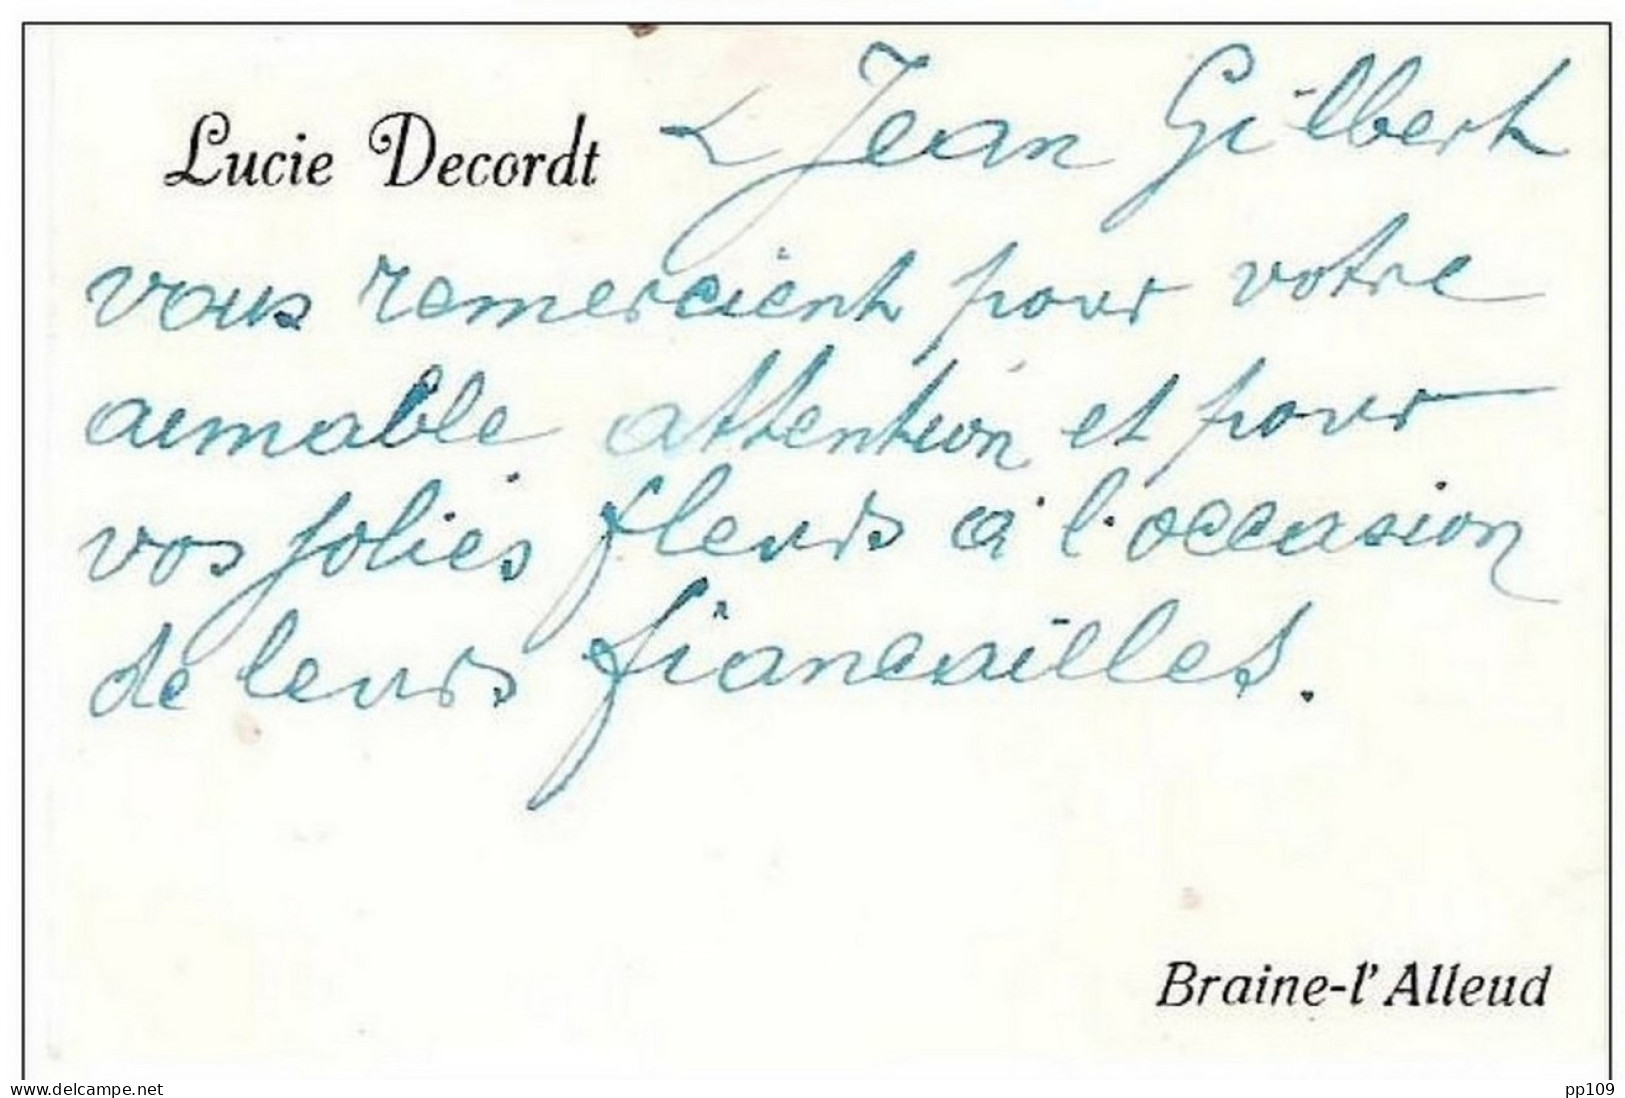 Lucie Decordt & Jean Gilbert
vous remercient pour votre
aimable attention et pour
vos jolies fleurs à l'occasion
de leurs fiancailles.
Braine-l'Alleud
www.delcampe.net
pp109